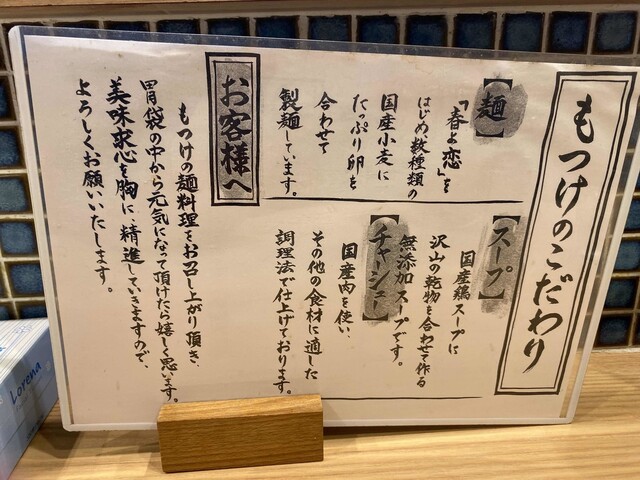 もつけのこだわり
【麺】
「春よ恋」を
はじめ数種類の
国産小麦に
たっぷり卵を
合わせて
製麺しています。
【スープ】
国産鶏スープに
沢山の乾物を合わせて作る
無添加スープです。
【チャーシュー】
国産肉を使い、
その他の食材に適した
調理法で仕上げております。
お客様へ
もつけの麺料理をお召し上がり頂き、
胃袋の中から元気になって頂けたら嬉しく思います。
美味求心を胸に、精進していきますので、
よろしくお願いいたします。
Lorena